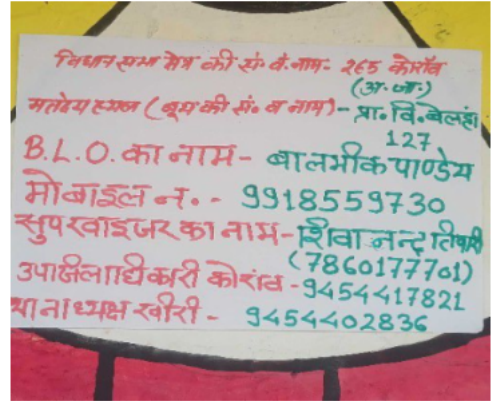 विधान सभा क्षेत्र की सं. व. नाम- 265 कोरांव
(अ. जा.)
मतदेय स्थल (बूथ की सं. व नाम) - प्रा. वि. बेलहा
127
B.L.O. का नाम - बालमीक पाण्डेय
मोबाइल न. - 9918559730
सुपरवाइजर का नाम - शिवानन्द तिवारी
(7860177701)
उपजिलाधिकारी कोरांव - 9454417821
थानाध्यक्ष खीरी - 9454402836